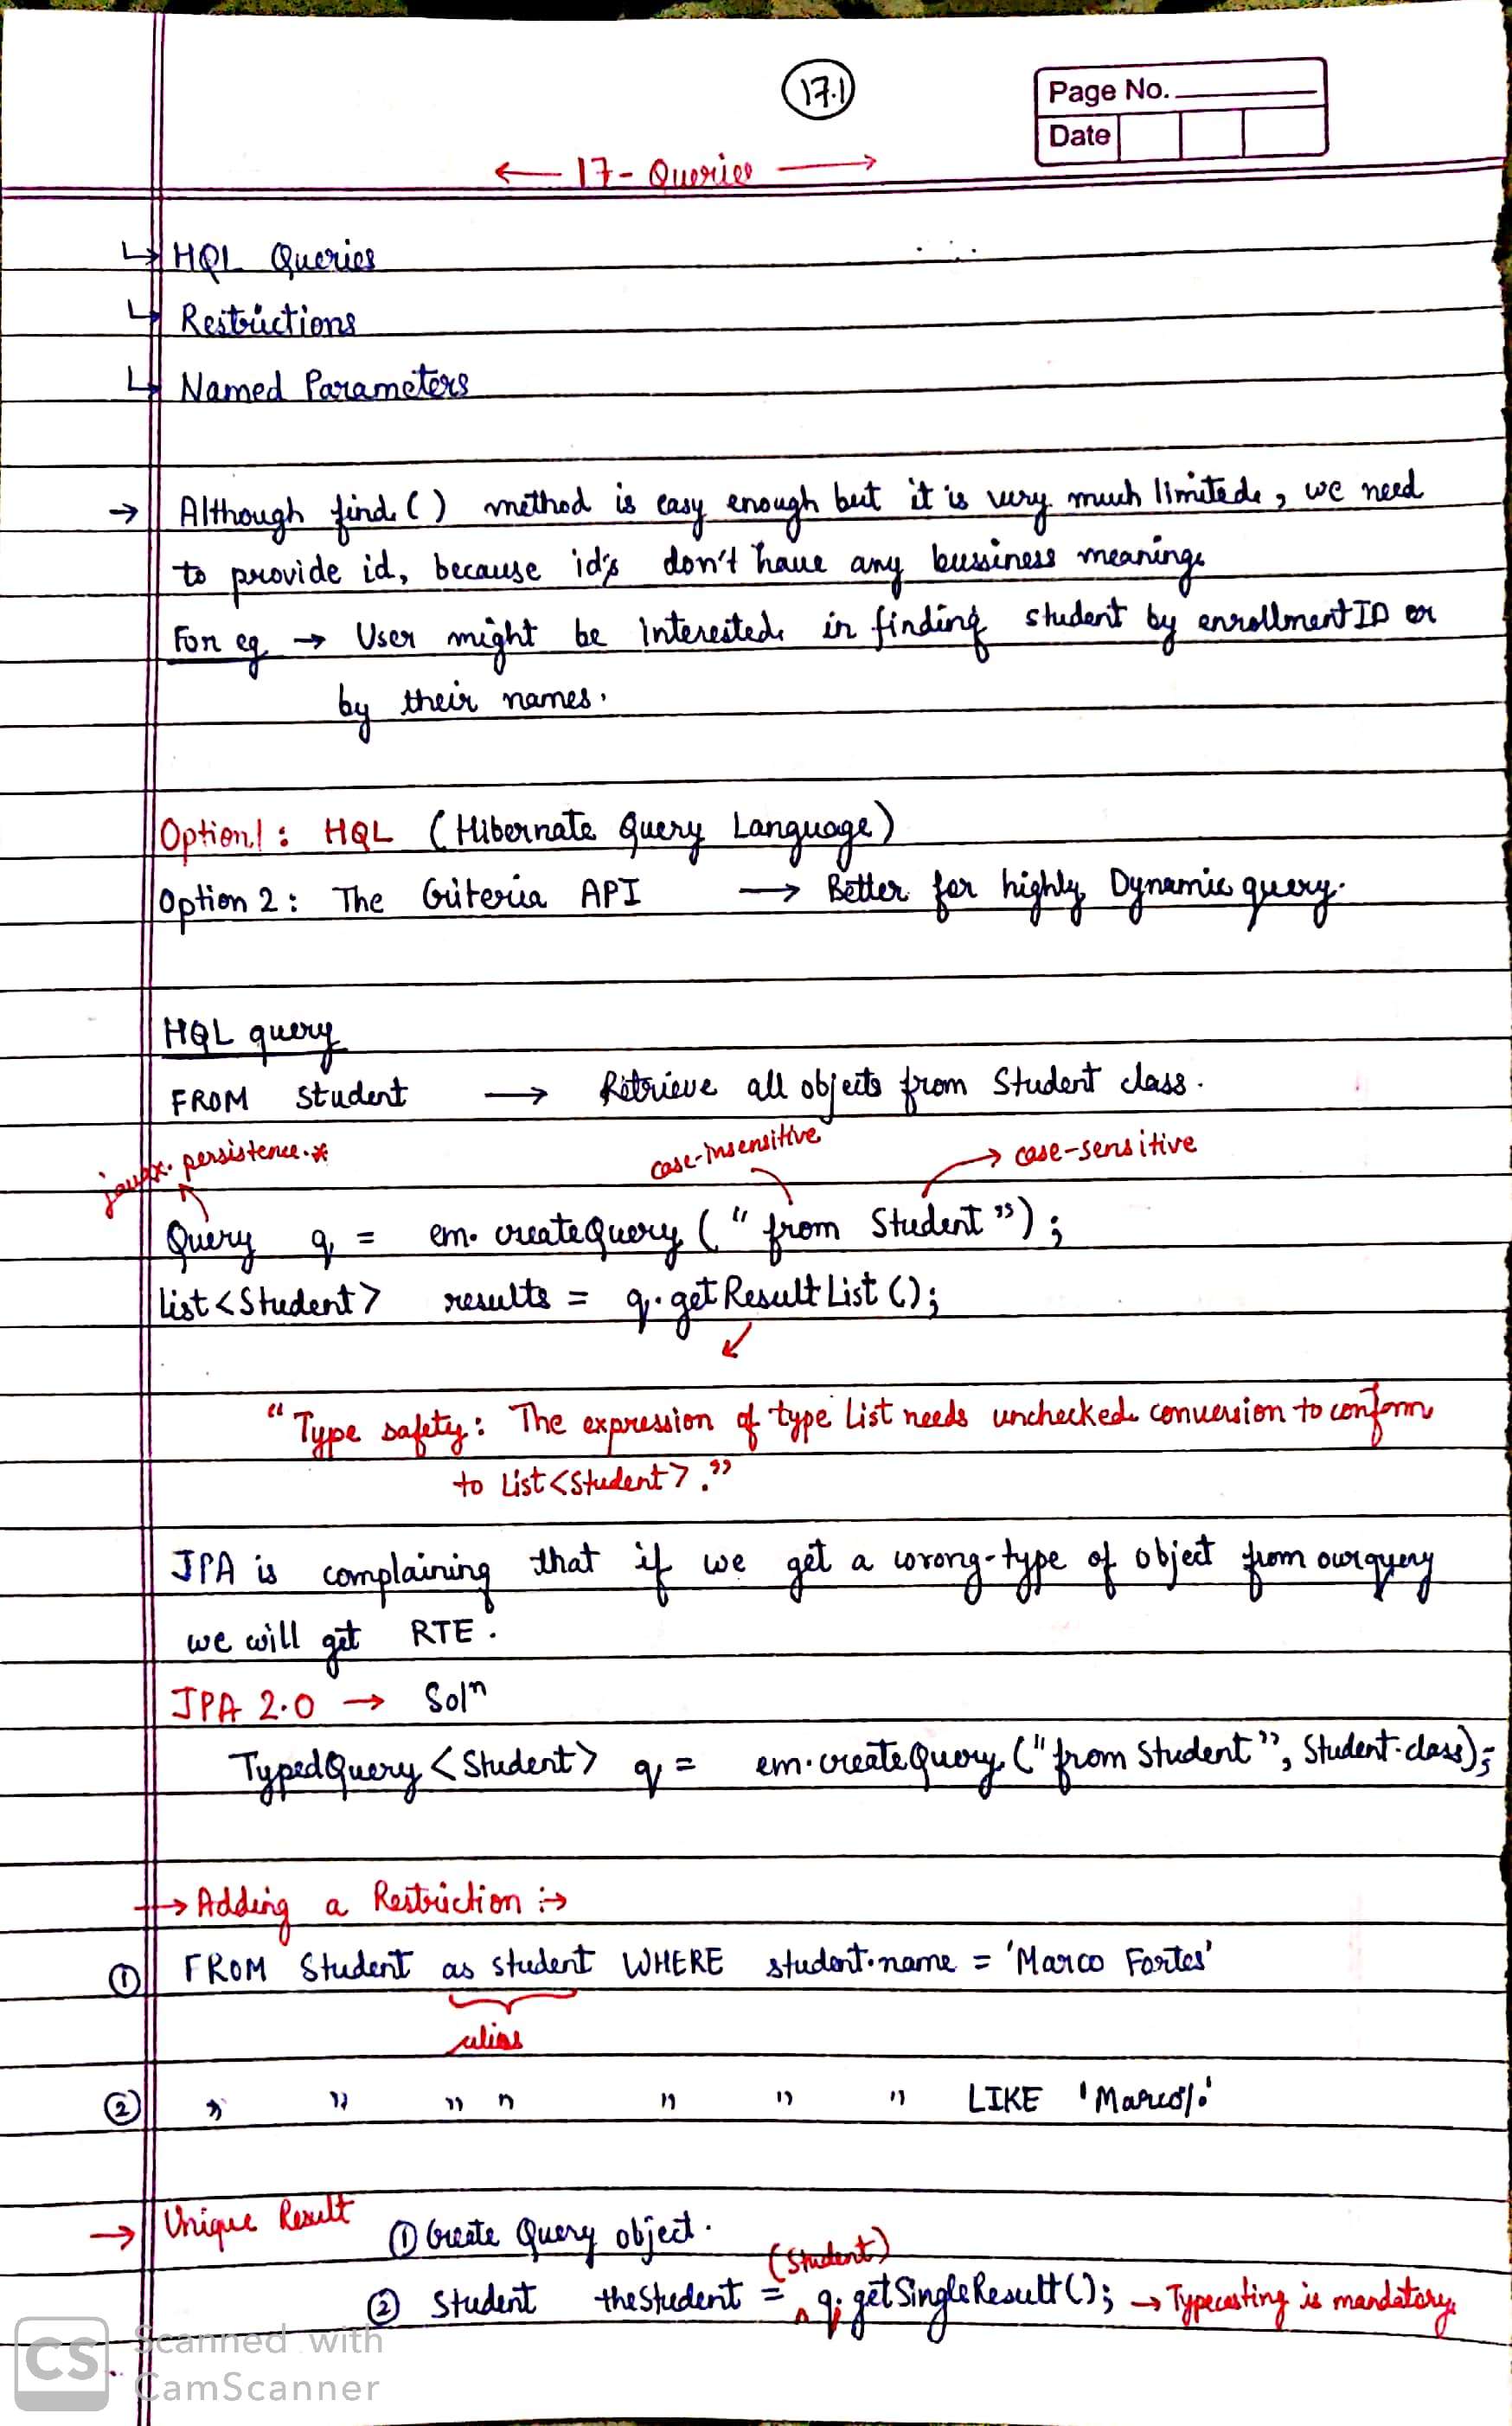 17.1
Page No.
Date
← 17 - Queries →
↳ HQL Queries
↳ Restrictions
↳ Named Parameters
→ Although find() method is easy enough but it is very much limited, we need
to provide id, because id's don't have any bussiness meaning.
For eg → User might be interested in finding student by enrollment ID or
by their names.
Option1: HQL (Hibernate Query Language)
Option 2: The Criteria API → Better for highly Dynamic query.
HQL query
FROM Student → Retrieve all objects from Student class.
javax.persistence.* case-insensitive → case-sensitive
Query q = em.createQuery("from Student");
List<Student> results = q.getResultList();
"Type safety: The expression of type List needs unchecked conversion to conform
to List<Student>."
JPA is complaining that if we get a wrong-type of object from our query
we will get RTE.
JPA 2.0 → Solⁿ
TypedQuery<Student> q = em.createQuery("from Student", Student.class);
→ Adding a Restriction :→
① FROM Student as student WHERE student.name = 'Marco Fortes'
alias
② " " " " " " " LIKE 'Marco%'
→ Unique Result ① Create Query object.
(Student)
② Student theStudent = ^ q.getSingleResult(); → Typecasting is mandatory.
CS Scanned with
CamScanner